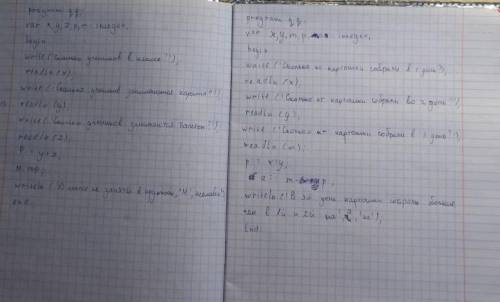 program q q;
var x, y, z, p, m: integer;
begin
write ('Сколько учеников в классе?');
readln (x);
write ('Сколько учеников занимаются
readln (y);
write ('Сколько учеников занимаются
readln (z);
p = y+z;
writeln ('В классе не заняты в кружках,
end.
program q q;
var x, y, m, p, : integer;
begin
write ('Сколько кг картошки собрали в 1 день?');
readln (x);
write ('Сколько кг картошки собрали во 2 день?');
readln (y);
write ('Сколько кг картошки собрали в 3 день?');
readln (m);
p : x+y;
a : m-p;
writeln ('В 3й день картошки собрали больше
чем в 1й и 2й на
End.